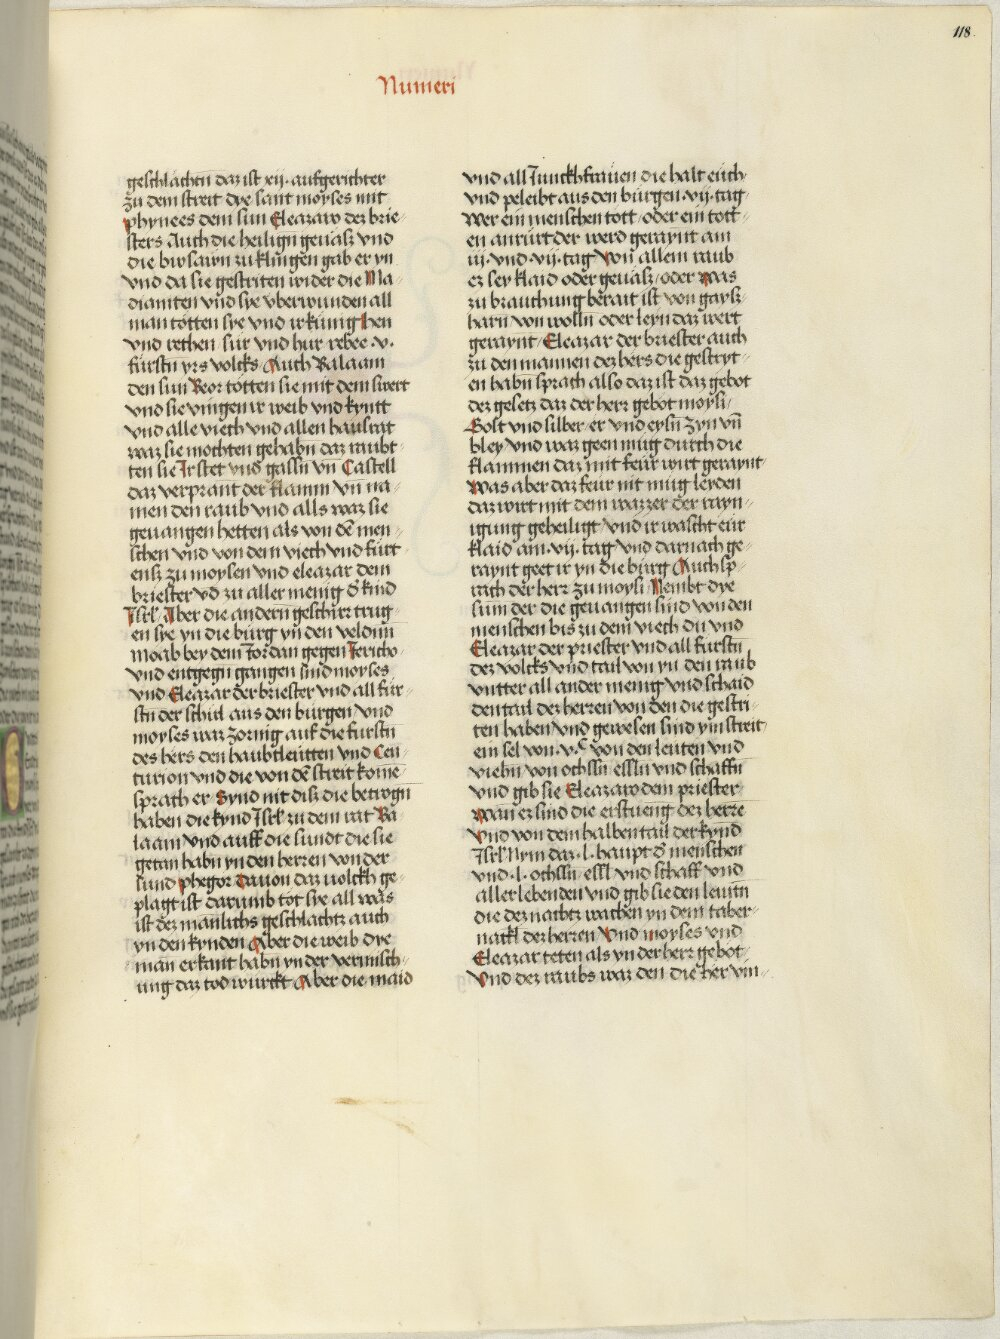 118
Numeri
geschlächtn daz ist xij · aufgerichter
zu dem streit dye sant moyses mit
phynees dem sun Eleazaro dez brie⸗
sters Auch die heiligñ geuäsz vnd
die busawn zu klingen gab er yn
vnd da sie gestriten wider die Ma⸗
dianiten vnd sye vberwunden all
man totten sye vnd ir künig hen
vnd rethen sur vnd hur rebee · v ·
fürstn yrs volcks Auch Balaam
den sun Beor totten sie mit dem swert
vnd sie viengen ir weib vnd kyntt
vnd alle viech vnd allen hausrat
waz sie mochten gehabn daz raubt⸗
ten sie Ir stet vnd gassñ vn Castell
daz verprant der flamm vñ na⸗
men den raub vnd alls waz sie
geuangen hetten als von dē men⸗
schen vnd von dem viech vnd fürt
ensz zu moysen vnd eleazar dem
briester vd zu aller menig d̄ kind
Isrl̄ Aber die andern geschirr trug⸗
en sye yn die bürg yn den veldnn
moab bey dem Jordan gegen Jericho
vnd entgegn gangen sind moyses
vnd Eleazar der briester vnd all für⸗
stn der schul aus den bürgen vnd
moyses waz zornig auf die fürstn
des hers den haubtleütten vnd Cen⸗
turion vnd die von dē streit kome⸗
sprach er Synd nit disz die betrogñ
haben die kynd Isrl̄ zu dem rat Ba⸗
laam vnd auff die sundt die sie
getan habn yn den herren von der
sund phegor Dauon daz volckh ge⸗
plagt ist darumb tot sye all was
ist dez mänlichs geschlächtz auch
yn den kynden Aber die weib dye
man erkant habn yn der vermisch⸗
ung daz tod wurckt Aber die maid
vnd all Junckhfräuen die halt eüch
vnd peleibt aus den bürgen · vij · tag
Wer ein menschen tott / oder ein tott⸗
en anrürt der werd geraynt am
iij · vnd · vij · tag Von allem raub
ez sey klaid oder geuäsz / oder was
zu brauchung berait ist von gaysz⸗
harn von wolln oder leyn daz wert
geraynt / Eleazar der briester auch
zu den mannen dez hers die gestryt⸗
en habn sprach also daz ist daz gebot
dez gesetz daz der herr gebot moysi /
Golt vnd silber · er vnd eysn zyn vñ
bley vnd waz geen mug durch die
flammen daz mit feür wirt geraynt
was aber daz feür nit mug leyden
daz wirt mit dem wazzer der rayn⸗
igung geheiligt / vnd ir wäscht eür
klaid am · vij · tag vnd darnach ge⸗
raynt geet ir yn die bürg Auch sp̄⸗
rach der herr zu moysi Nembt dye
sum der die geuangen sind von den
menschen bis zu dem viech du vnd
Eleazar der priester vnd all fürstn
dez volcks vnd tail von yn den raub
vntter all ander menig vnd schaid
den tail dez herren von den die gestri⸗
ten haben vnd gewesen sind yn streit
ein sel von · v · c von den leuten vnd
viehn von ochssn essln vnd schaffn
vnd gib sie Eleazaro dem priester
wan ez sind die erstueng dez herre
Vnd von dem halben tail der kynd
Isrl̄ Nym daz · l · haupt d̄ menschen
vnd · l · ochssn essl vnd schaff vnd
aller lebenden vnd gib sie den leuitn
die dez nachtz wachen yn dem taber⸗
nackl dez herren Vnd moyses vnd
Eleazar teten als yn der herr gebot
Vnd dez raubs waz den die her vin⸗